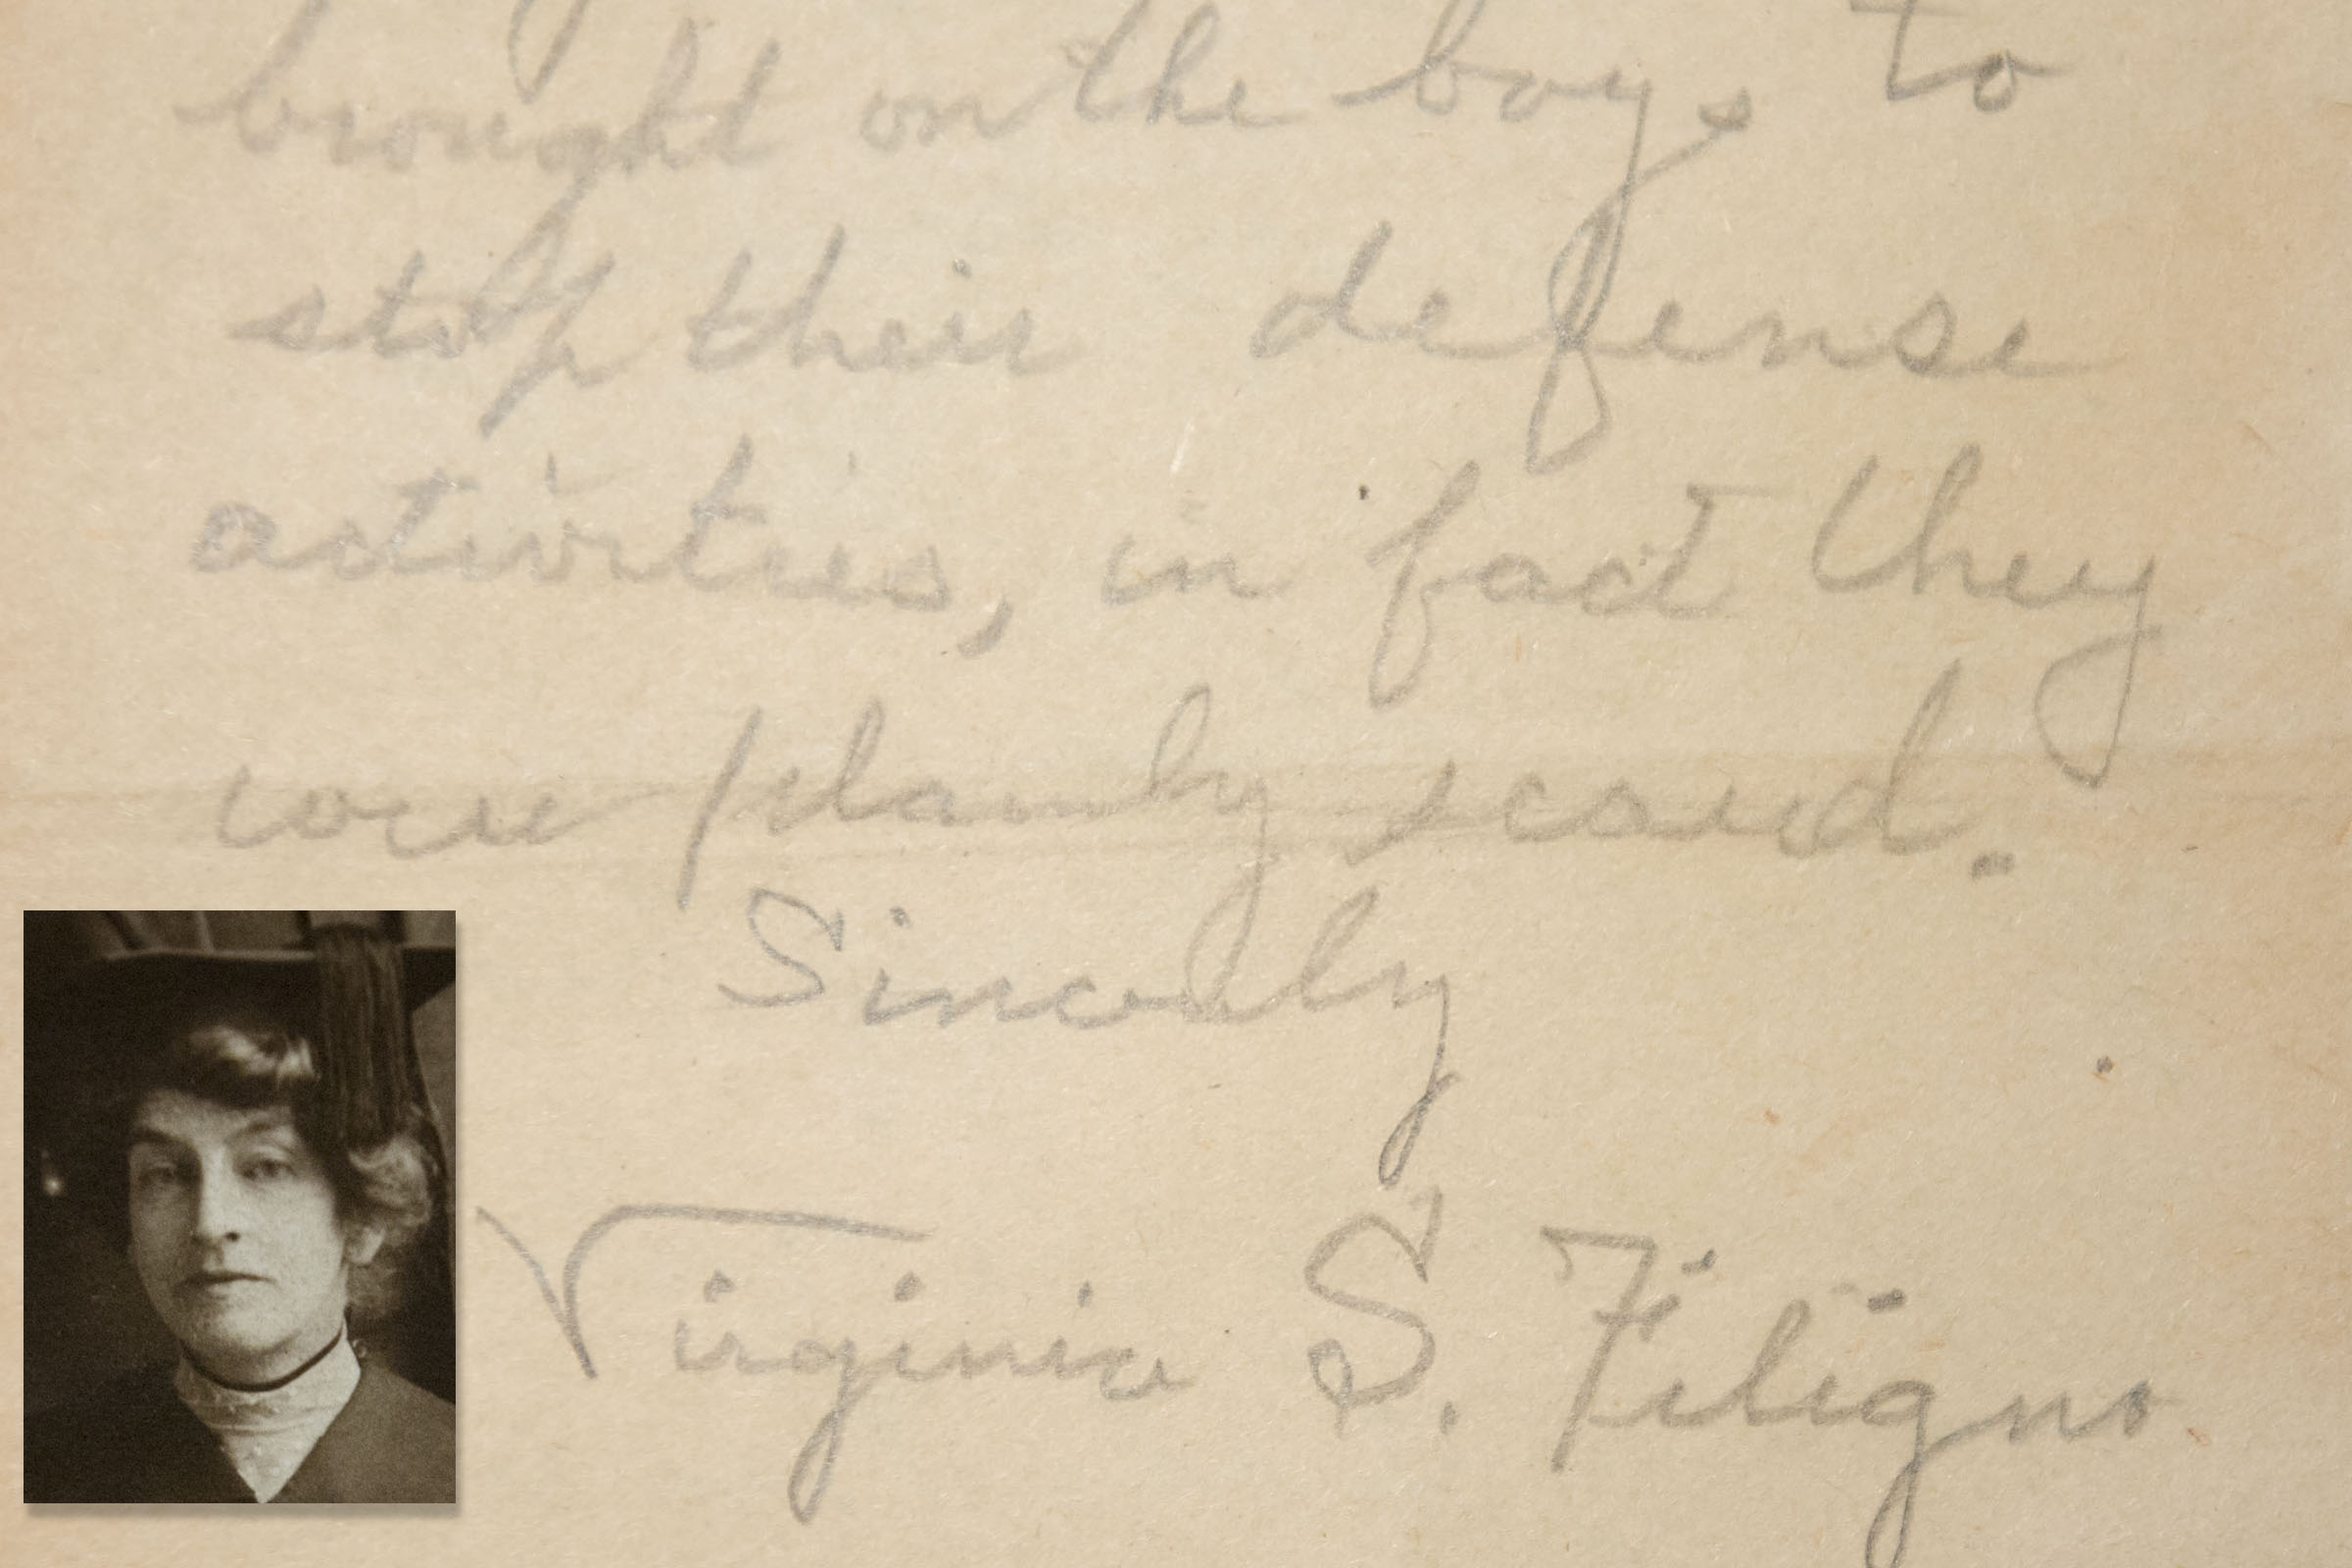 brought on the boys to
stop their defense
activities, in fact they
were plainly scared.
Sincerely
Virginia S. Filigno